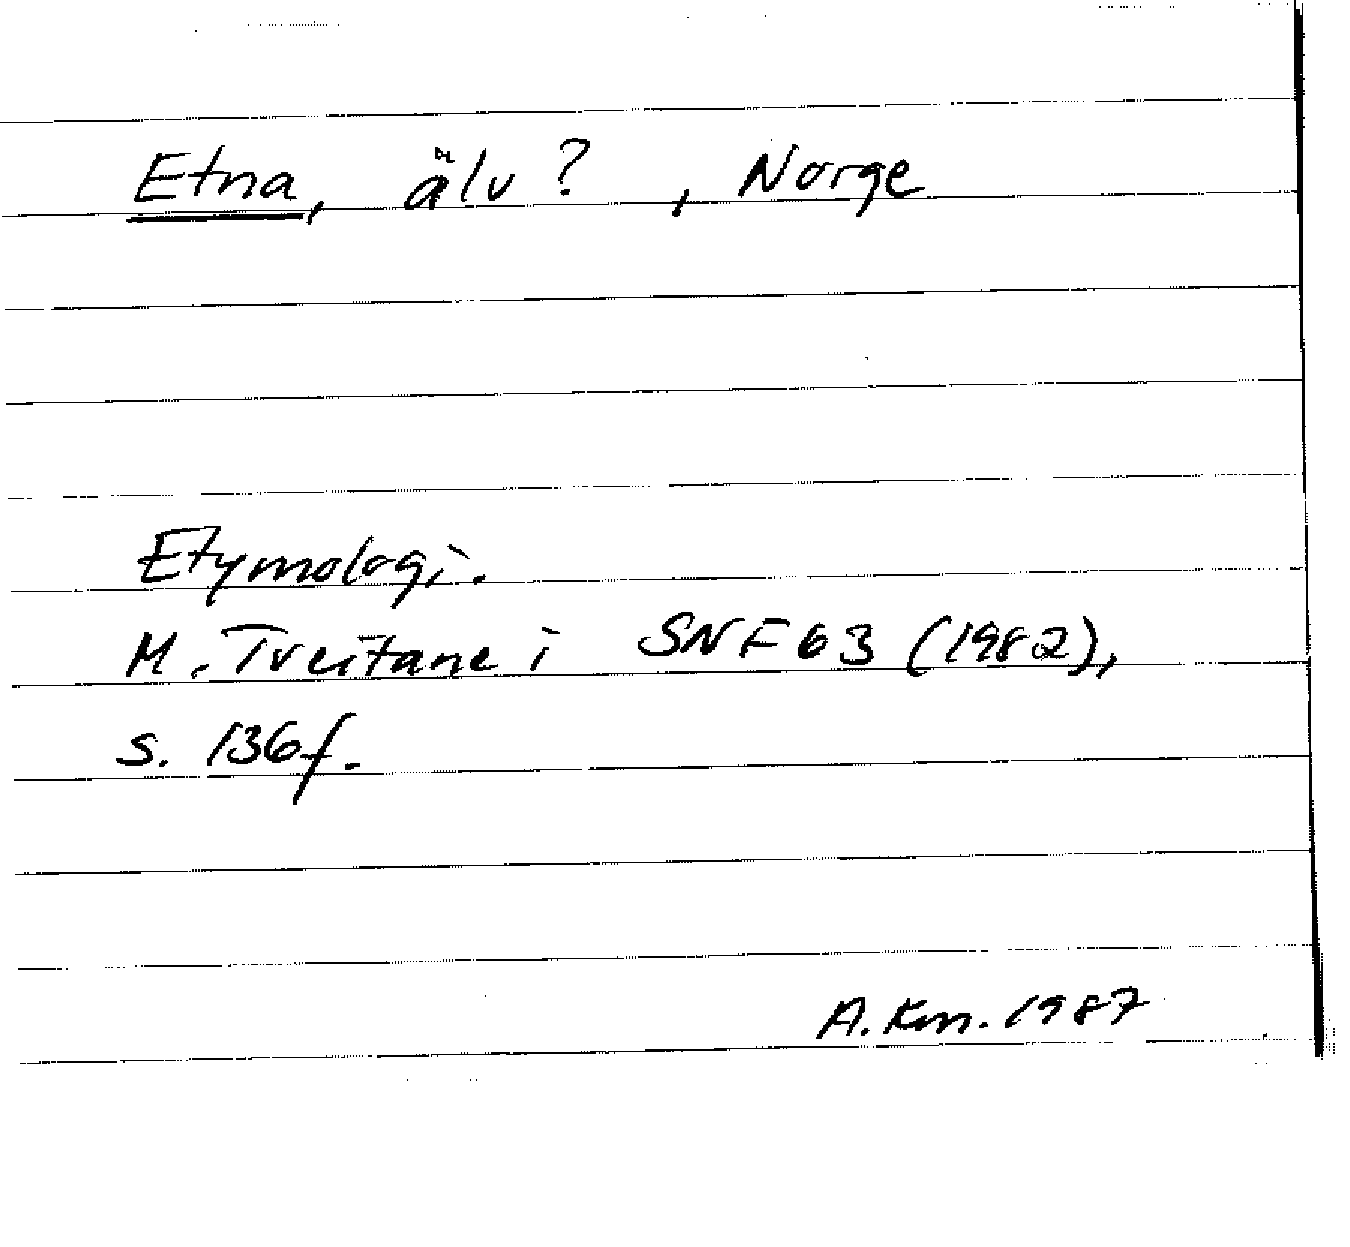 Etna, älv? , Norge
Etymologi.
M. Tveitane i SNF 63 (1982),
s. 136f.
A. Km. 1987